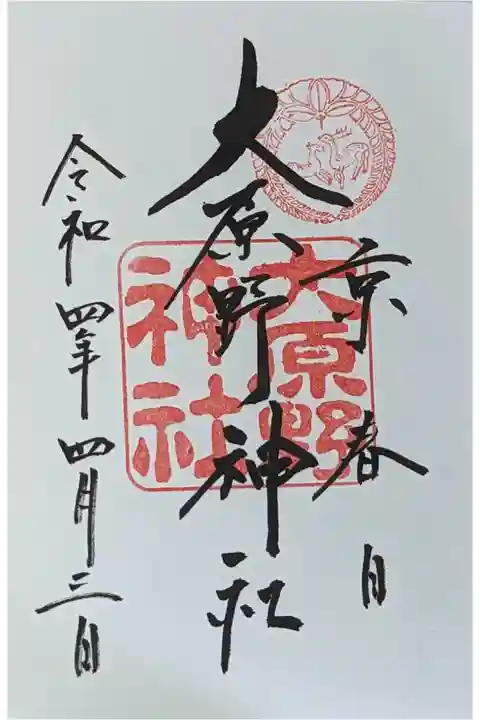 京春日
大原野神社
令和四年四月三日
大原野
神社